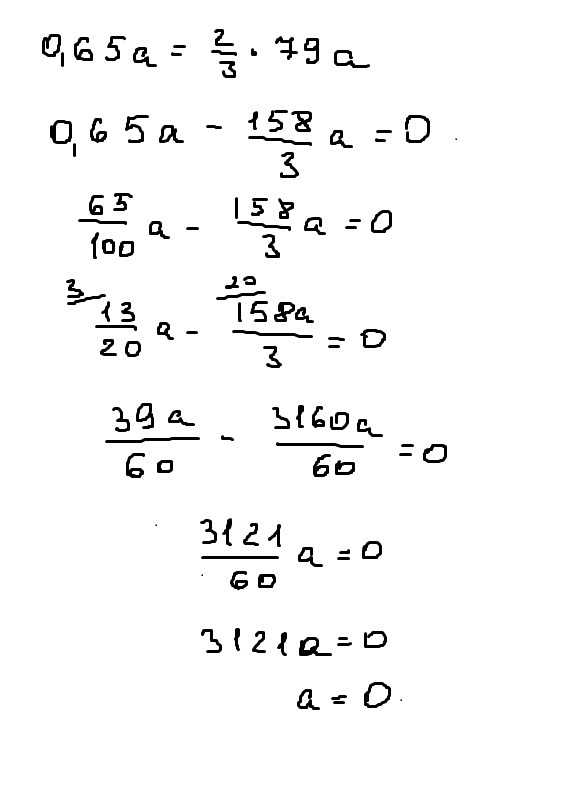 0,65a = 2/3 · 79a
0,65a - 158/3 a = 0
65/100 a - 158/3 a = 0
3 13/20 a - 20 158a/3 = 0
39a/60 - 3160a/60 = 0
3121/60 a = 0
3121a = 0
a = 0